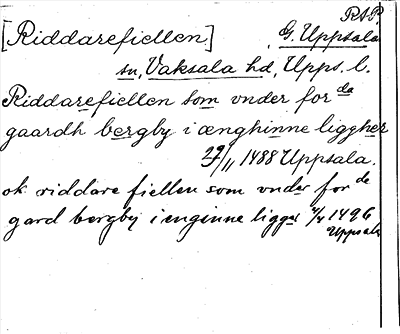 RAP
[Riddarefiellen.] G. Uppsala
sn, Vaksala hd, Upps. l.
Riddarefiellen som vnder for da
gaardh bergby i ænghinne liggher
29/11 1488 Uppsala.
ok riddare fiellen som vnder for de
gard bergby i enginne ligger 4/4 1496
Uppsala